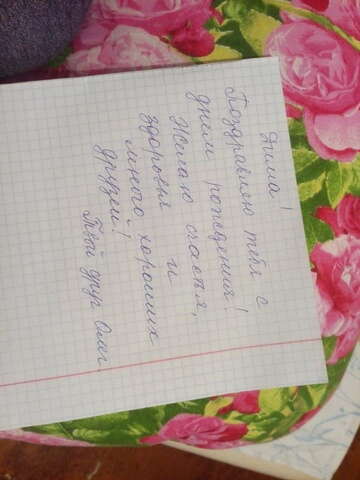 Дима!
Поздравляю тебя с
днём рождения!
Желаю счастья,
здоровья и
много хороших
друзей!
Твой друг Олег